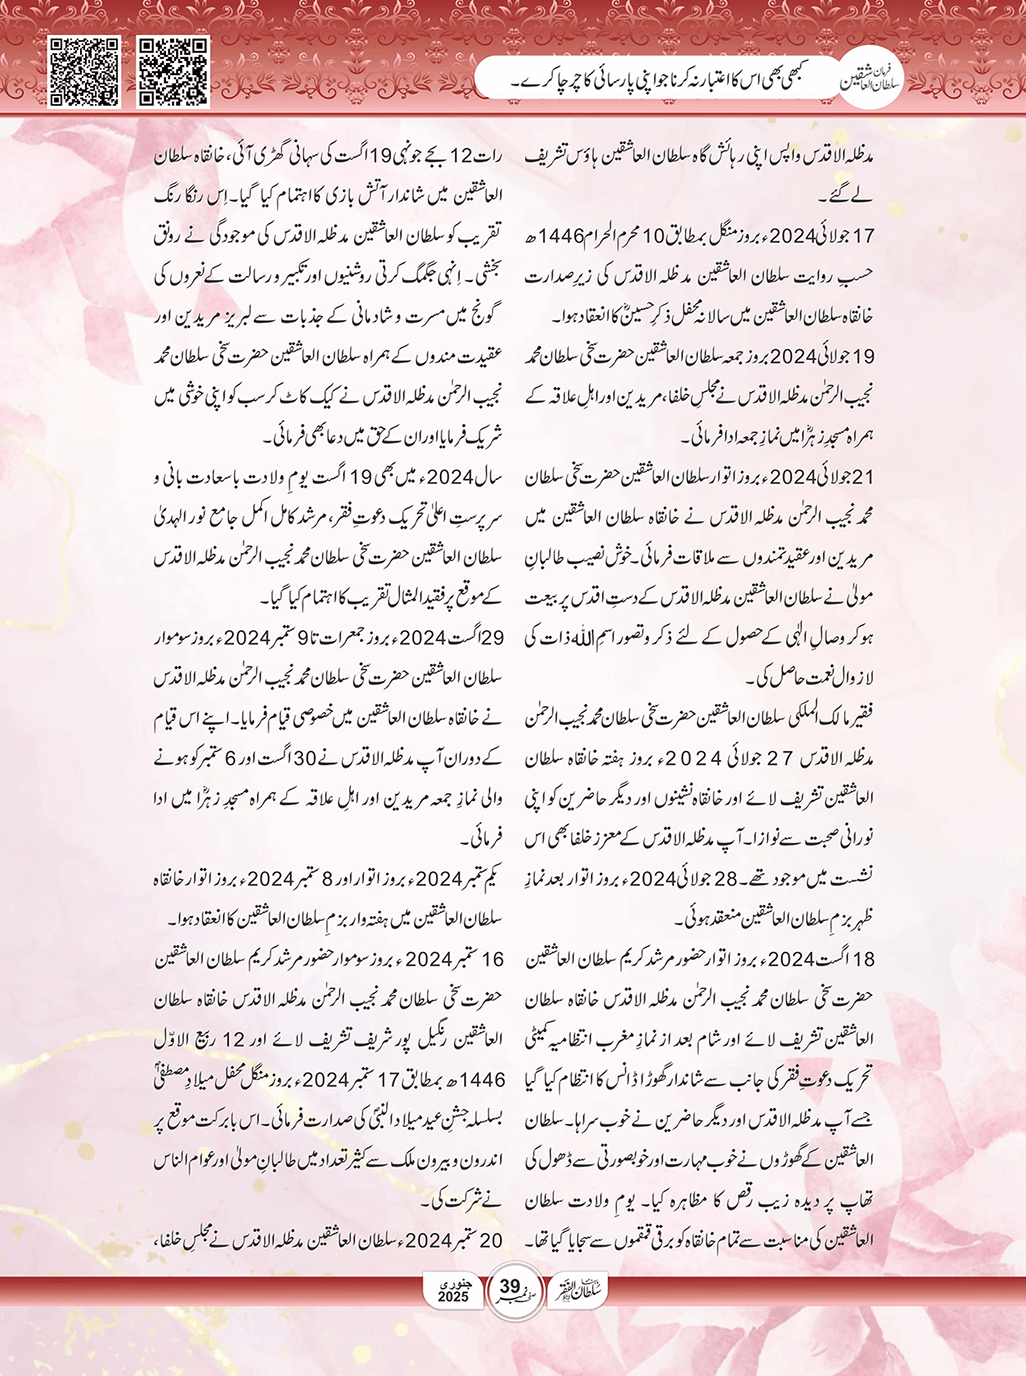 فرمان سلطان العاشقین
کبھی بھی اس کا اعتبار نہ کرنا جو اپنی پارسائی کا چرچا کرے۔
مدظلہ الاقدس واپس اپنی رہائش گاہ سلطان العاشقین ہاؤس تشریف
لے گئے۔
17 جولائی 2024ء بروز منگل بمطابق 10 محرم الحرام 1446ھ
حسب روایت سلطان العاشقین مدظلہ الاقدس کی زیرِ صدارت
خانقاہ سلطان العاشقین میں سالانہ محفل ذکرِ حسینؓ کا انعقاد ہوا۔
19 جولائی 2024 بروز جمعہ سلطان العاشقین حضرت سخی سلطان محمد
نجیب الرحمٰن مدظلہ الاقدس نے مجلسِ خلفا، مریدین اور اہلِ علاقہ کے
ہمراہ مسجدِ زہراؓ میں نمازِ جمعہ ادا فرمائی۔
21 جولائی 2024ء بروز اتوار سلطان العاشقین حضرت سخی سلطان
محمد نجیب الرحمٰن مدظلہ الاقدس نے خانقاہ سلطان العاشقین میں
مریدین اور عقیدتمندوں سے ملاقات فرمائی۔ خوش نصیب طالبانِ
مولیٰ نے سلطان العاشقین مدظلہ الاقدس کے دستِ اقدس پر بیعت
ہو کر وصالِ الٰہی کے حصول کے لئے ذکر و تصور اسمِ اللہ ذات کی
لازوال نعمت حاصل کی۔
فقیر مالک الملکی سلطان العاشقین حضرت سخی سلطان محمد نجیب الرحمٰن
مدظلہ الاقدس 27 جولائی 2024ء بروز ہفتہ خانقاہ سلطان
العاشقین تشریف لائے اور خانقاہ نشینوں اور دیگر حاضرین کو اپنی
نورانی صحبت سے نوازا۔ آپ مدظلہ الاقدس کے معزز خلفا بھی اس
نشست میں موجود تھے۔ 28 جولائی 2024ء بروز اتوار بعد نمازِ
ظہر بزمِ سلطان العاشقین منعقد ہوئی۔
18 اگست 2024ء بروز اتوار حضور مرشد کریم سلطان العاشقین
حضرت سخی سلطان محمد نجیب الرحمٰن مدظلہ الاقدس خانقاہ سلطان
العاشقین تشریف لائے اور شام بعد از نمازِ مغرب انتظامیہ کمیٹی
تحریک دعوتِ فقر کی جانب سے شاندار گھوڑا ڈانس کا انتظام کیا گیا
جسے آپ مدظلہ الاقدس اور دیگر حاضرین نے خوب سراہا۔ سلطان
العاشقین کے گھوڑوں نے خوب مہارت اور خوبصورتی سے ڈھول کی
تھاپ پر دیدہ زیب رقص کا مظاہرہ کیا۔ یومِ ولادت سلطان
العاشقین کی مناسبت سے تمام خانقاہ کو برقی قمقموں سے سجایا گیا تھا۔
رات 12 بجے جونہی 19 اگست کی سہانی گھڑی آئی، خانقاہ سلطان
العاشقین میں شاندار آتش بازی کا اہتمام کیا گیا۔ اِس رنگا رنگ
تقریب کو سلطان العاشقین مدظلہ الاقدس کی موجودگی نے رونق
بخشی۔ اِنہی جگمگ کرتی روشنیوں اور تکبیر و رسالت کے نعروں کی
گونج میں مسرت و شادمانی کے جذبات سے لبریز مریدین اور
عقیدت مندوں کے ہمراہ سلطان العاشقین حضرت سخی سلطان محمد
نجیب الرحمٰن مدظلہ الاقدس نے کیک کاٹ کر سب کو اپنی خوشی میں
شریک فرمایا اور ان کے حق میں دعا بھی فرمائی۔
سال 2024ء میں بھی 19 اگست یومِ ولادت باسعادت بانی و
سرپرستِ اعلیٰ تحریک دعوتِ فقر، مرشد کامل اکمل جامع نور الہدیٰ
سلطان العاشقین حضرت سخی سلطان محمد نجیب الرحمٰن مدظلہ الاقدس
کے موقع پر فقید المثال تقریب کا اہتمام کیا گیا۔
29 اگست 2024ء بروز جمعرات تا 9 ستمبر 2024ء بروز سوموار
سلطان العاشقین حضرت سخی سلطان محمد نجیب الرحمٰن مدظلہ الاقدس
نے خانقاہ سلطان العاشقین میں خصوصی قیام فرمایا۔ اپنے اس قیام
کے دوران آپ مدظلہ الاقدس نے 30 اگست اور 6 ستمبر کو ہونے
والی نمازِ جمعہ مریدین اور اہلِ علاقہ کے ہمراہ مسجدِ زہراؓ میں ادا
فرمائی۔
یکم ستمبر 2024ء بروز اتوار اور 8 ستمبر 2024ء بروز اتوار خانقاہ
سلطان العاشقین میں ہفتہ وار بزمِ سلطان العاشقین کا انعقاد ہوا۔
16 ستمبر 2024ء بروز سوموار حضور مرشد کریم سلطان العاشقین
حضرت سخی سلطان محمد نجیب الرحمٰن مدظلہ الاقدس خانقاہ سلطان
العاشقین رنگیل پور شریف تشریف لائے اور 12 ربیع الاوّل
1446ھ بمطابق 17 ستمبر 2024ء بروز منگل محفل میلادِ مصطفیؐ
بسلسلہ جشنِ عید میلاد النبیؐ کی صدارت فرمائی۔ اس بابرکت موقع پر
اندرون و بیرون ملک سے کثیر تعداد میں طالبانِ مولیٰ اور عوام الناس
نے شرکت کی۔
20 ستمبر 2024ء سلطان العاشقین مدظلہ الاقدس نے مجلسِ خلفا،
سلطان الفقر
صفحہ نمبر 39
جنوری
2025